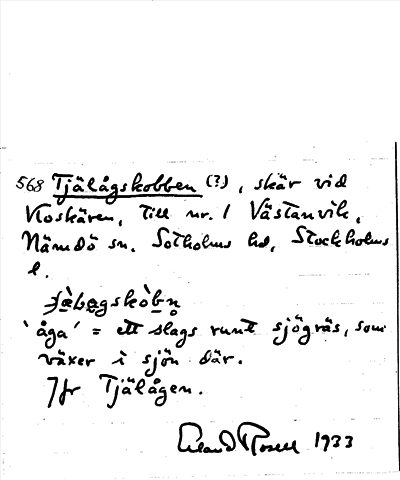 568 Tjälågskobben (?), skär vid
Kloskären, till nr. 1 Västanvik,
Nämdö sn. Sotholms hd, Stockholms
l.
'åga' = ett slags runt sjögräs, som
växer i sjön där.
Jfr Tjälågen.
Erland Rosell 1933